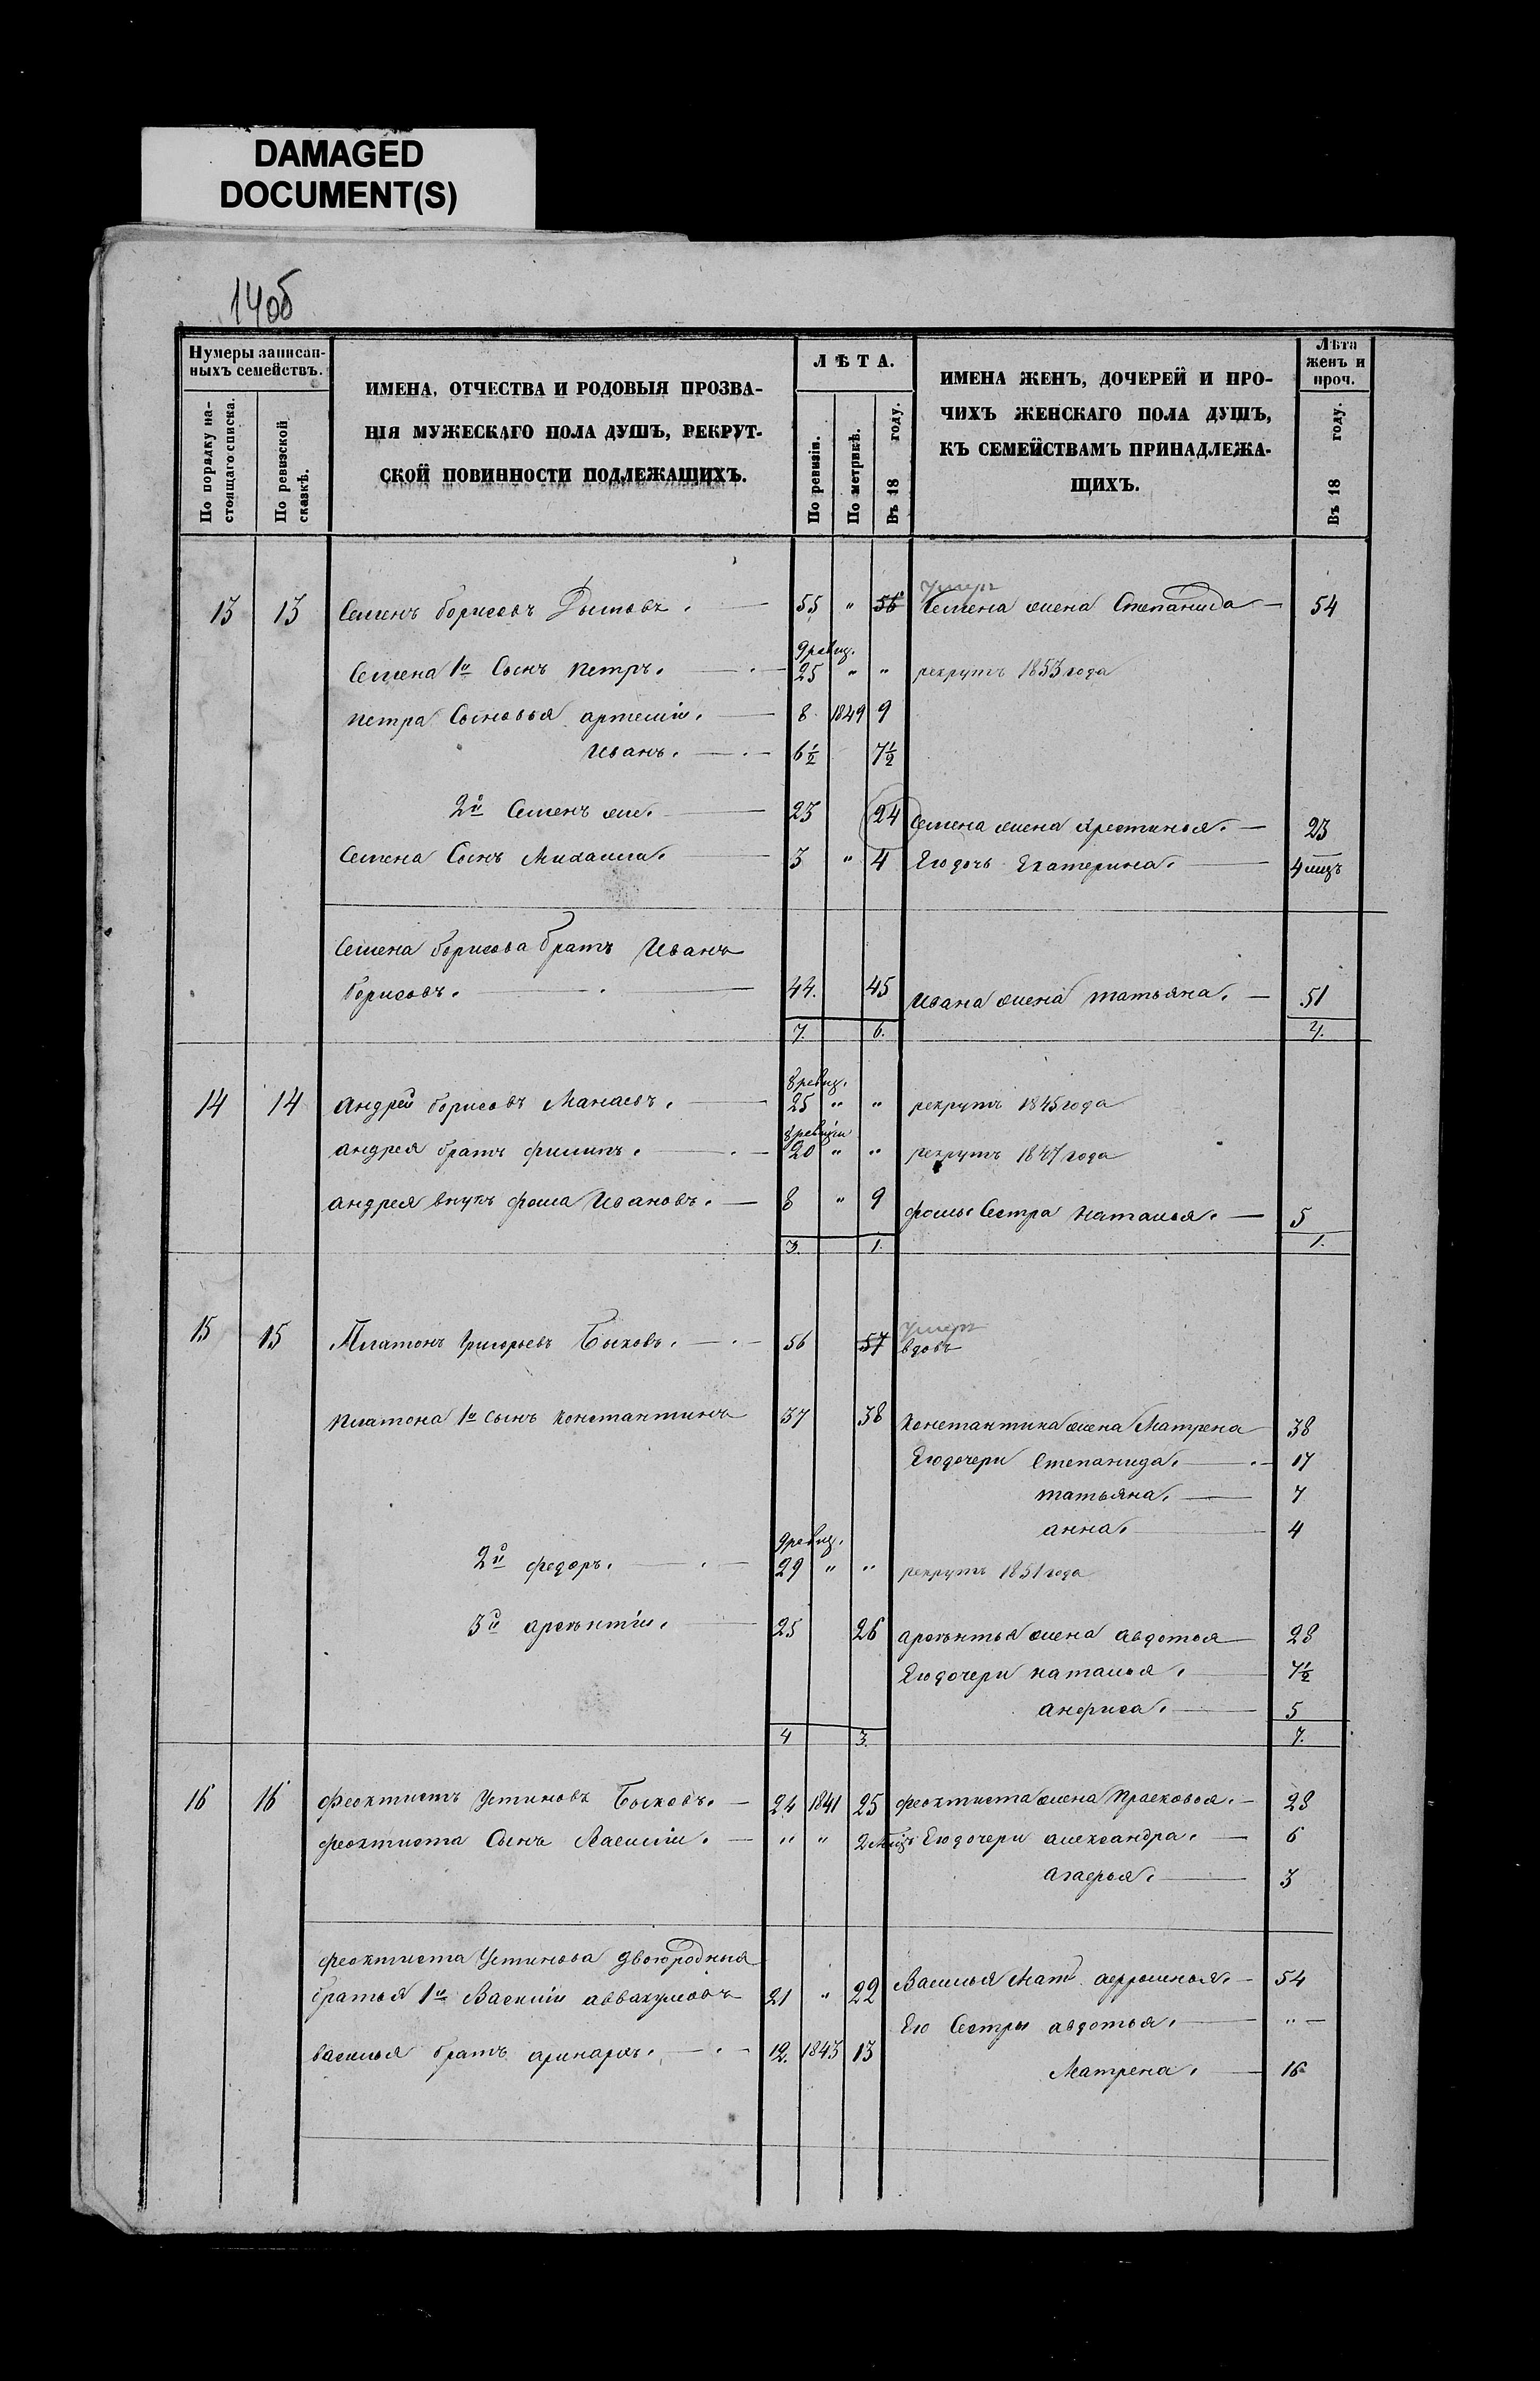 DAMAGED
DOCUMENT(S)
14об
Нумеры записан-
ныхъ семействъ.
По порядку на-
стоящаго списка.
По ревизской
сказкѣ.
ИМЕНА, ОТЧЕСТВА И РОДОВЫЯ ПРОЗВА-
НІЯ МУЖЕСКАГО ПОЛА ДУШЪ, РЕКРУТ-
СКОЙ ПОВИННОСТИ ПОДЛЕЖАЩИХЪ.
ЛѢТА.
По ревизіи.
По метрикѣ.
Въ 18 году.
ИМЕНА ЖЕНЪ, ДОЧЕРЕЙ И ПРО-
ЧИХЪ ЖЕНСКАГО ПОЛА ДУШЪ,
КЪ СЕМЕЙСТВАМЪ ПРИНАДЛЕЖА-
ЩИХЪ.
Лѣта
женъ и
проч.
Въ 18 году.
умеръ
13 13 Семенъ борисовъ 55 " 56 Семена жена Степанида 54
9 ревиз.
Семена 1й Сынъ петръ. 25 " " рекрутъ 1853 года
петра Сыновья артемій. 8 1849 9
Иванъ. 6½ 7½
2й Семенъ же. 23 24 Семена жена Крестинья. 23
Семена Сынъ Михаила. 3 " 4 Его дочь Екатерина. 4 мцъ
Семена борисова братъ Иванъ
борисовъ. 44. 45 Ивана жена татьяна. 51
7. 6. 4.
8 ревиз.
14 14 Андрей борисовъ Манаевъ. 25 " " рекрутъ 1845 года
8 ревизіи
андрея братъ филипъ. 20 " " рекрутъ 1847 года
андрея внукъ фома Ивановъ. 8 " 9 фомы Сестра наталья. 5
3. 1. 1.
умеръ
15 15 Платонъ григорьевъ Быковъ. 56 57 вдовъ
платона 1й сынъ константинъ 37 38 константина жена Матрена 38
Его дочери Степанида. 17
татьяна. 7
анна. 4
9 ревиз.
2й федоръ. 29 " " рекрутъ 1851 года
3й арсентій. 25 26 арсентья жена авдотья 28
Его дочери наталья. 7½
анфиса. 5
4 3. 7.
16 16 феоктистъ Устиновъ Быковъ. 24 1841 25 феоктиста жена Прасковья. 28
феоктиста Сынъ Василій. " " 2 мцъ Его дочери александра. 6
агафья. 3
феоктиста Устинова двоюродныя
братья 1й Василій аввакумовъ 21 " 22 Василья Мать афросинья. 54
Его Сестры авдотья. "
василья братъ аринархъ. 12. 1843 13
Матрена. 16